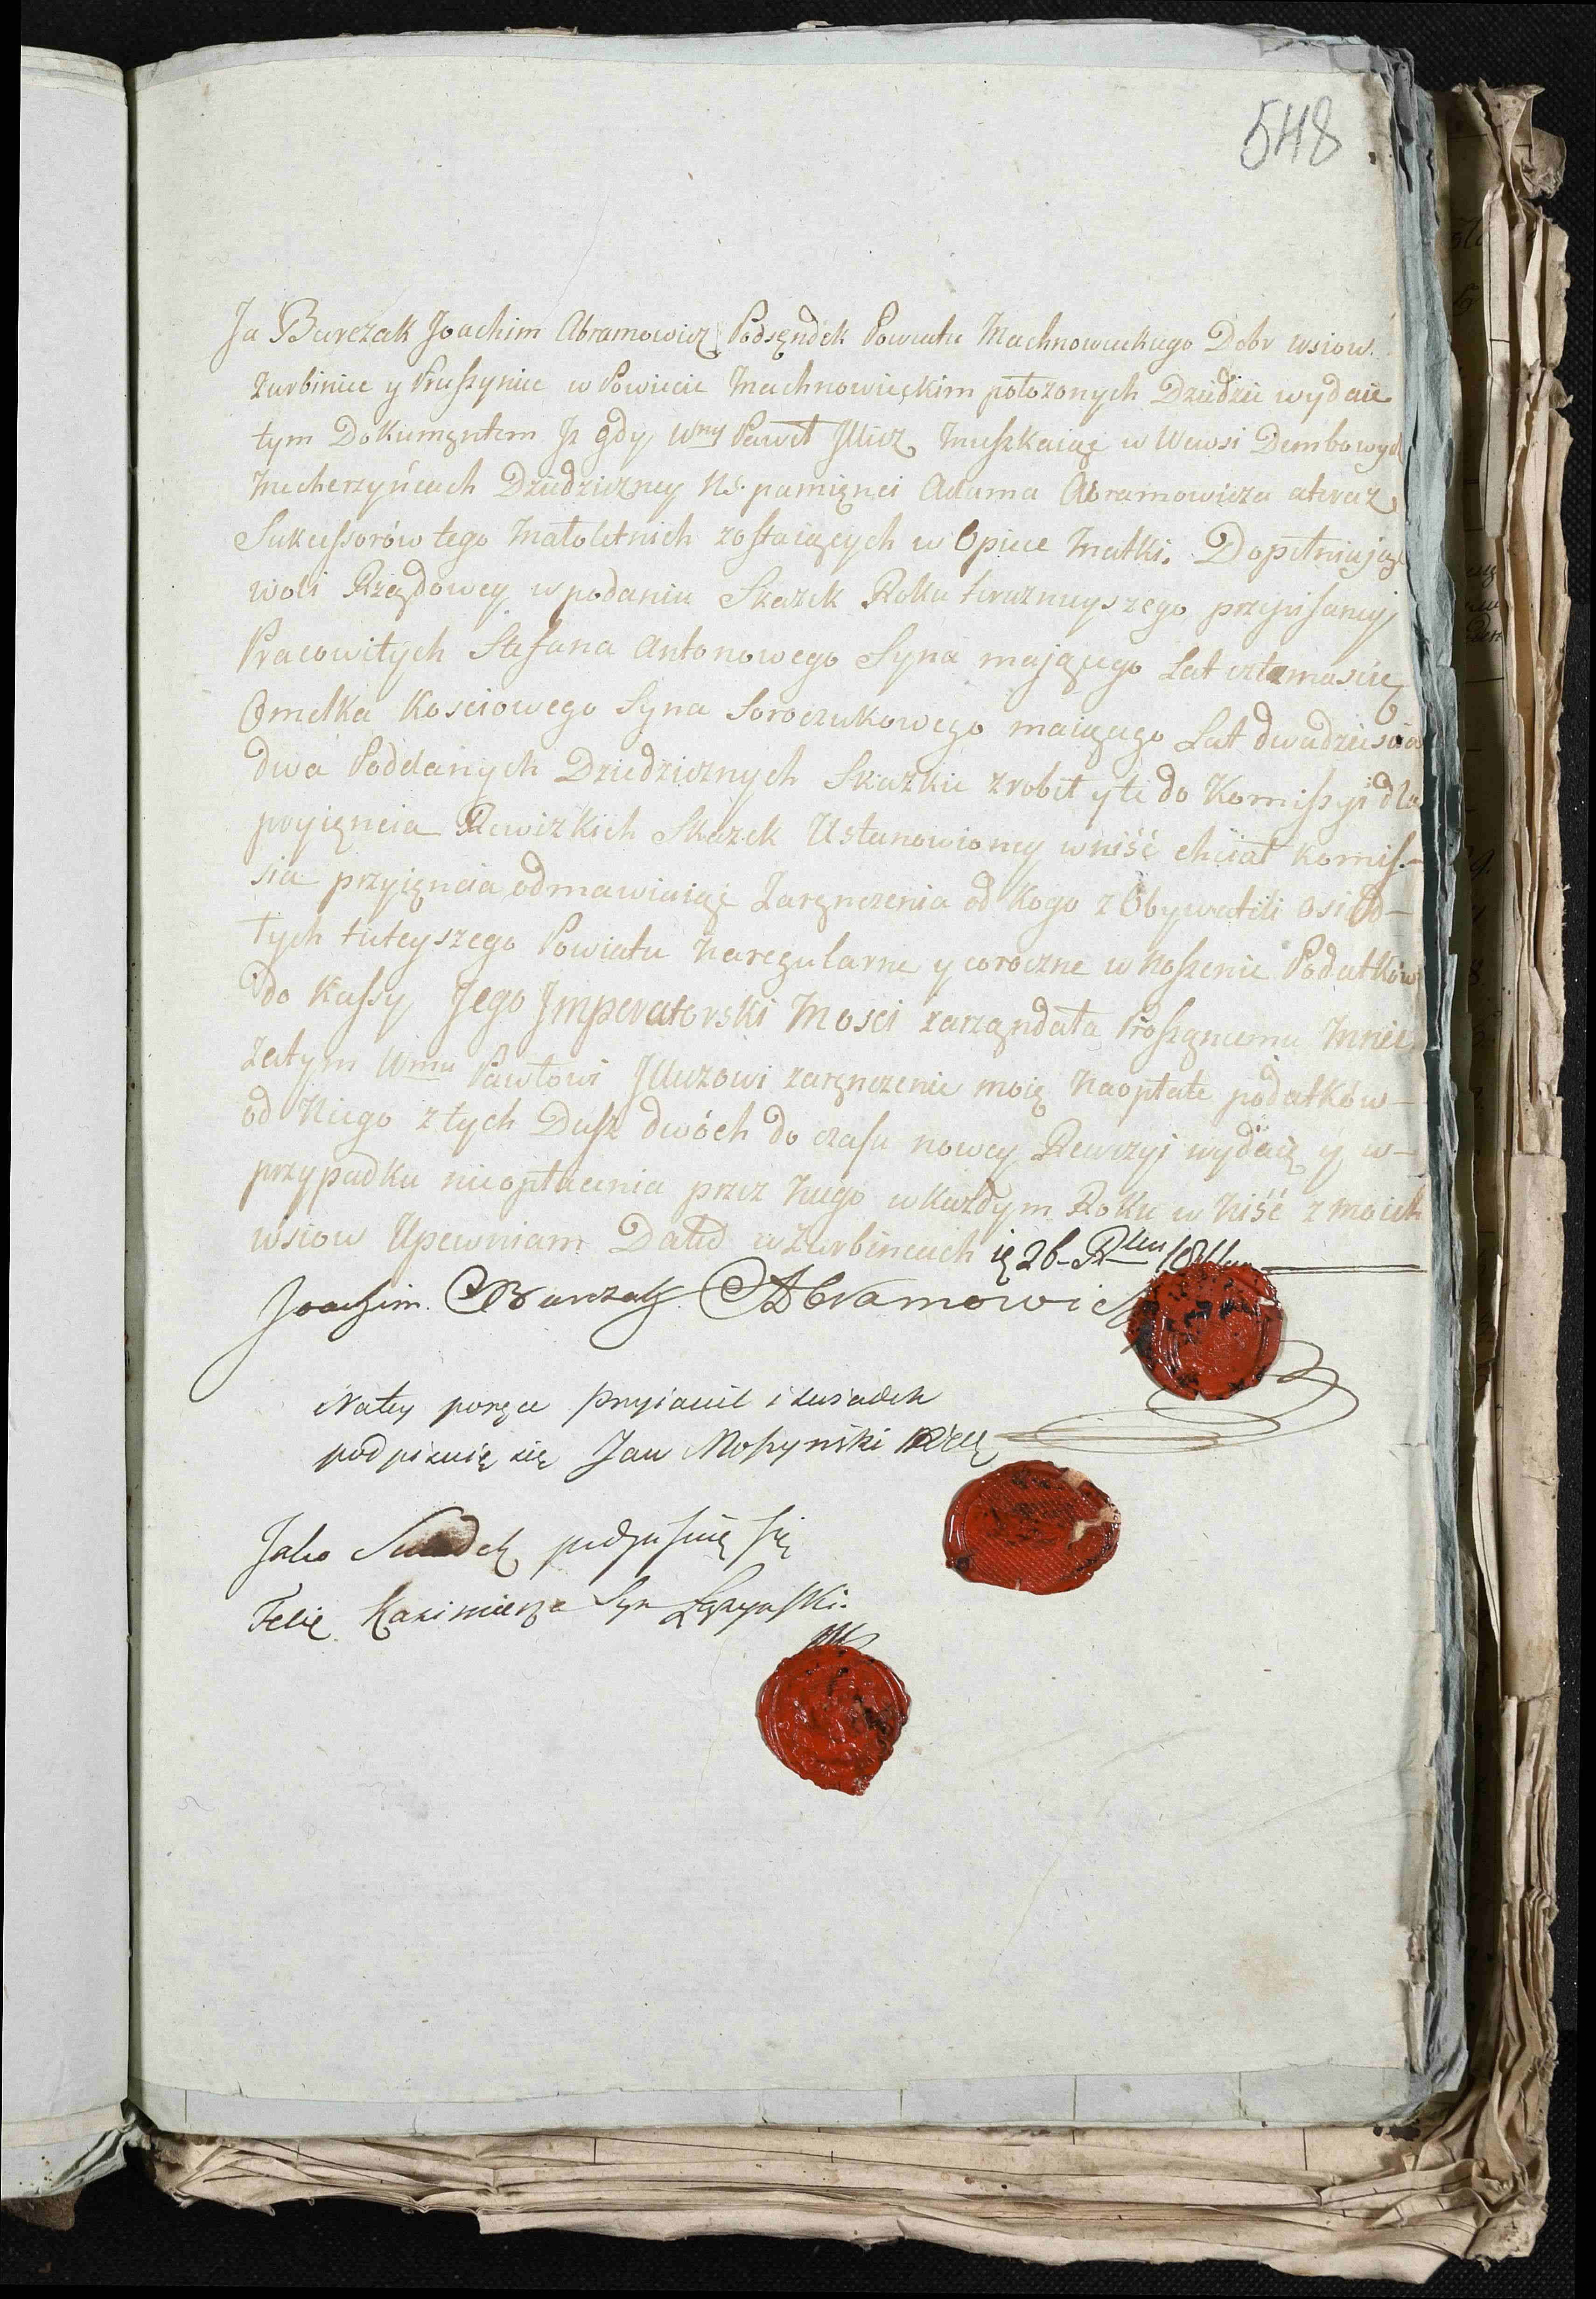 548
Ja Burczak Joachim Abramowicz Podsęndek Powiatu Machnowieckiego Dobr wsiow
Żurbiniec y Pruszyniec w Powiecie Machnowięckim położonych Dziedzic wydaie
tym Dokumęntem Jż gdy Wny Paweł Jllicz Mieszkaiąc w Wewsi Dembowych
Mecherzyńcach Dziedziczney Ns. pamięnci Adama Abramowicza ateraz
Sukcessorów tego Małoletnich zostaiących w Opiece Matki. Dopełniając
woli Rządowey w podaniu Skazek Roku teraznieyszego przepisaney
Pracowitych Stefana Antonowego Syna mającego Lat
Omelka Kosciowego Syna Soroczukowego maiącego Lat dwadzieścia
dwa Poddanych Dziedzicznych Skazkie zrobił y te do Komissyi dla
przyięncia Rewizkich Skazek Ustanowioney wniść chciał Komis-
sia przyięncia odmawiaiąc Zaręnczenia od Kogo z Obywateli osiad-
łych tuteyszego Powiatu na regularne y coroczne wnoszenie Podatków
do Kassy Jego Jmperatorski Mosci zarządała Proszęncemu Mnie
zatym Wmu Pawłowi Jlliczowi zaręnczenie moię na opłate podatków
od Niego z tych Dusz dwóch do czasu nowey Rewizyi wydaię y w
przypadku nieopłacenia przez Niego w Każdym Roku wniść z moich
wsiow Upewniam Datt w Żurbińcach
Joachim Burczak Abramowicz
Na tey poręce przyiaciel i swiadek
podpisuię się Jan Moszyński
Jako Swiadek podpisuię się
Felix Kazimierza Syn